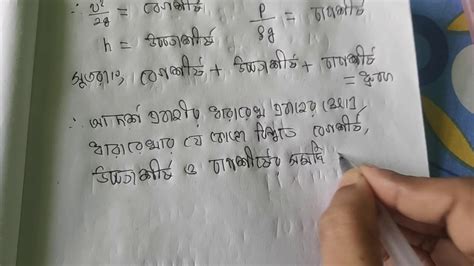 ∴ v²/2g = বেগশীর্ষ   P/ρg = চাপশীর্ষ
h = উচ্চতাশীর্ষ
সুতরাং, বেগশীর্ষ + উচ্চতাশীর্ষ + চাপশীর্ষ
= ধ্রুবক
∴ আদর্শ প্রবাহীর ধারারেখ প্রবাহের ক্ষেত্রে,
ধারারেখার যে কোনো বিন্দুতে বেগশীর্ষ,
উচ্চতাশীর্ষ ও চাপশীর্ষের সমষ্টি